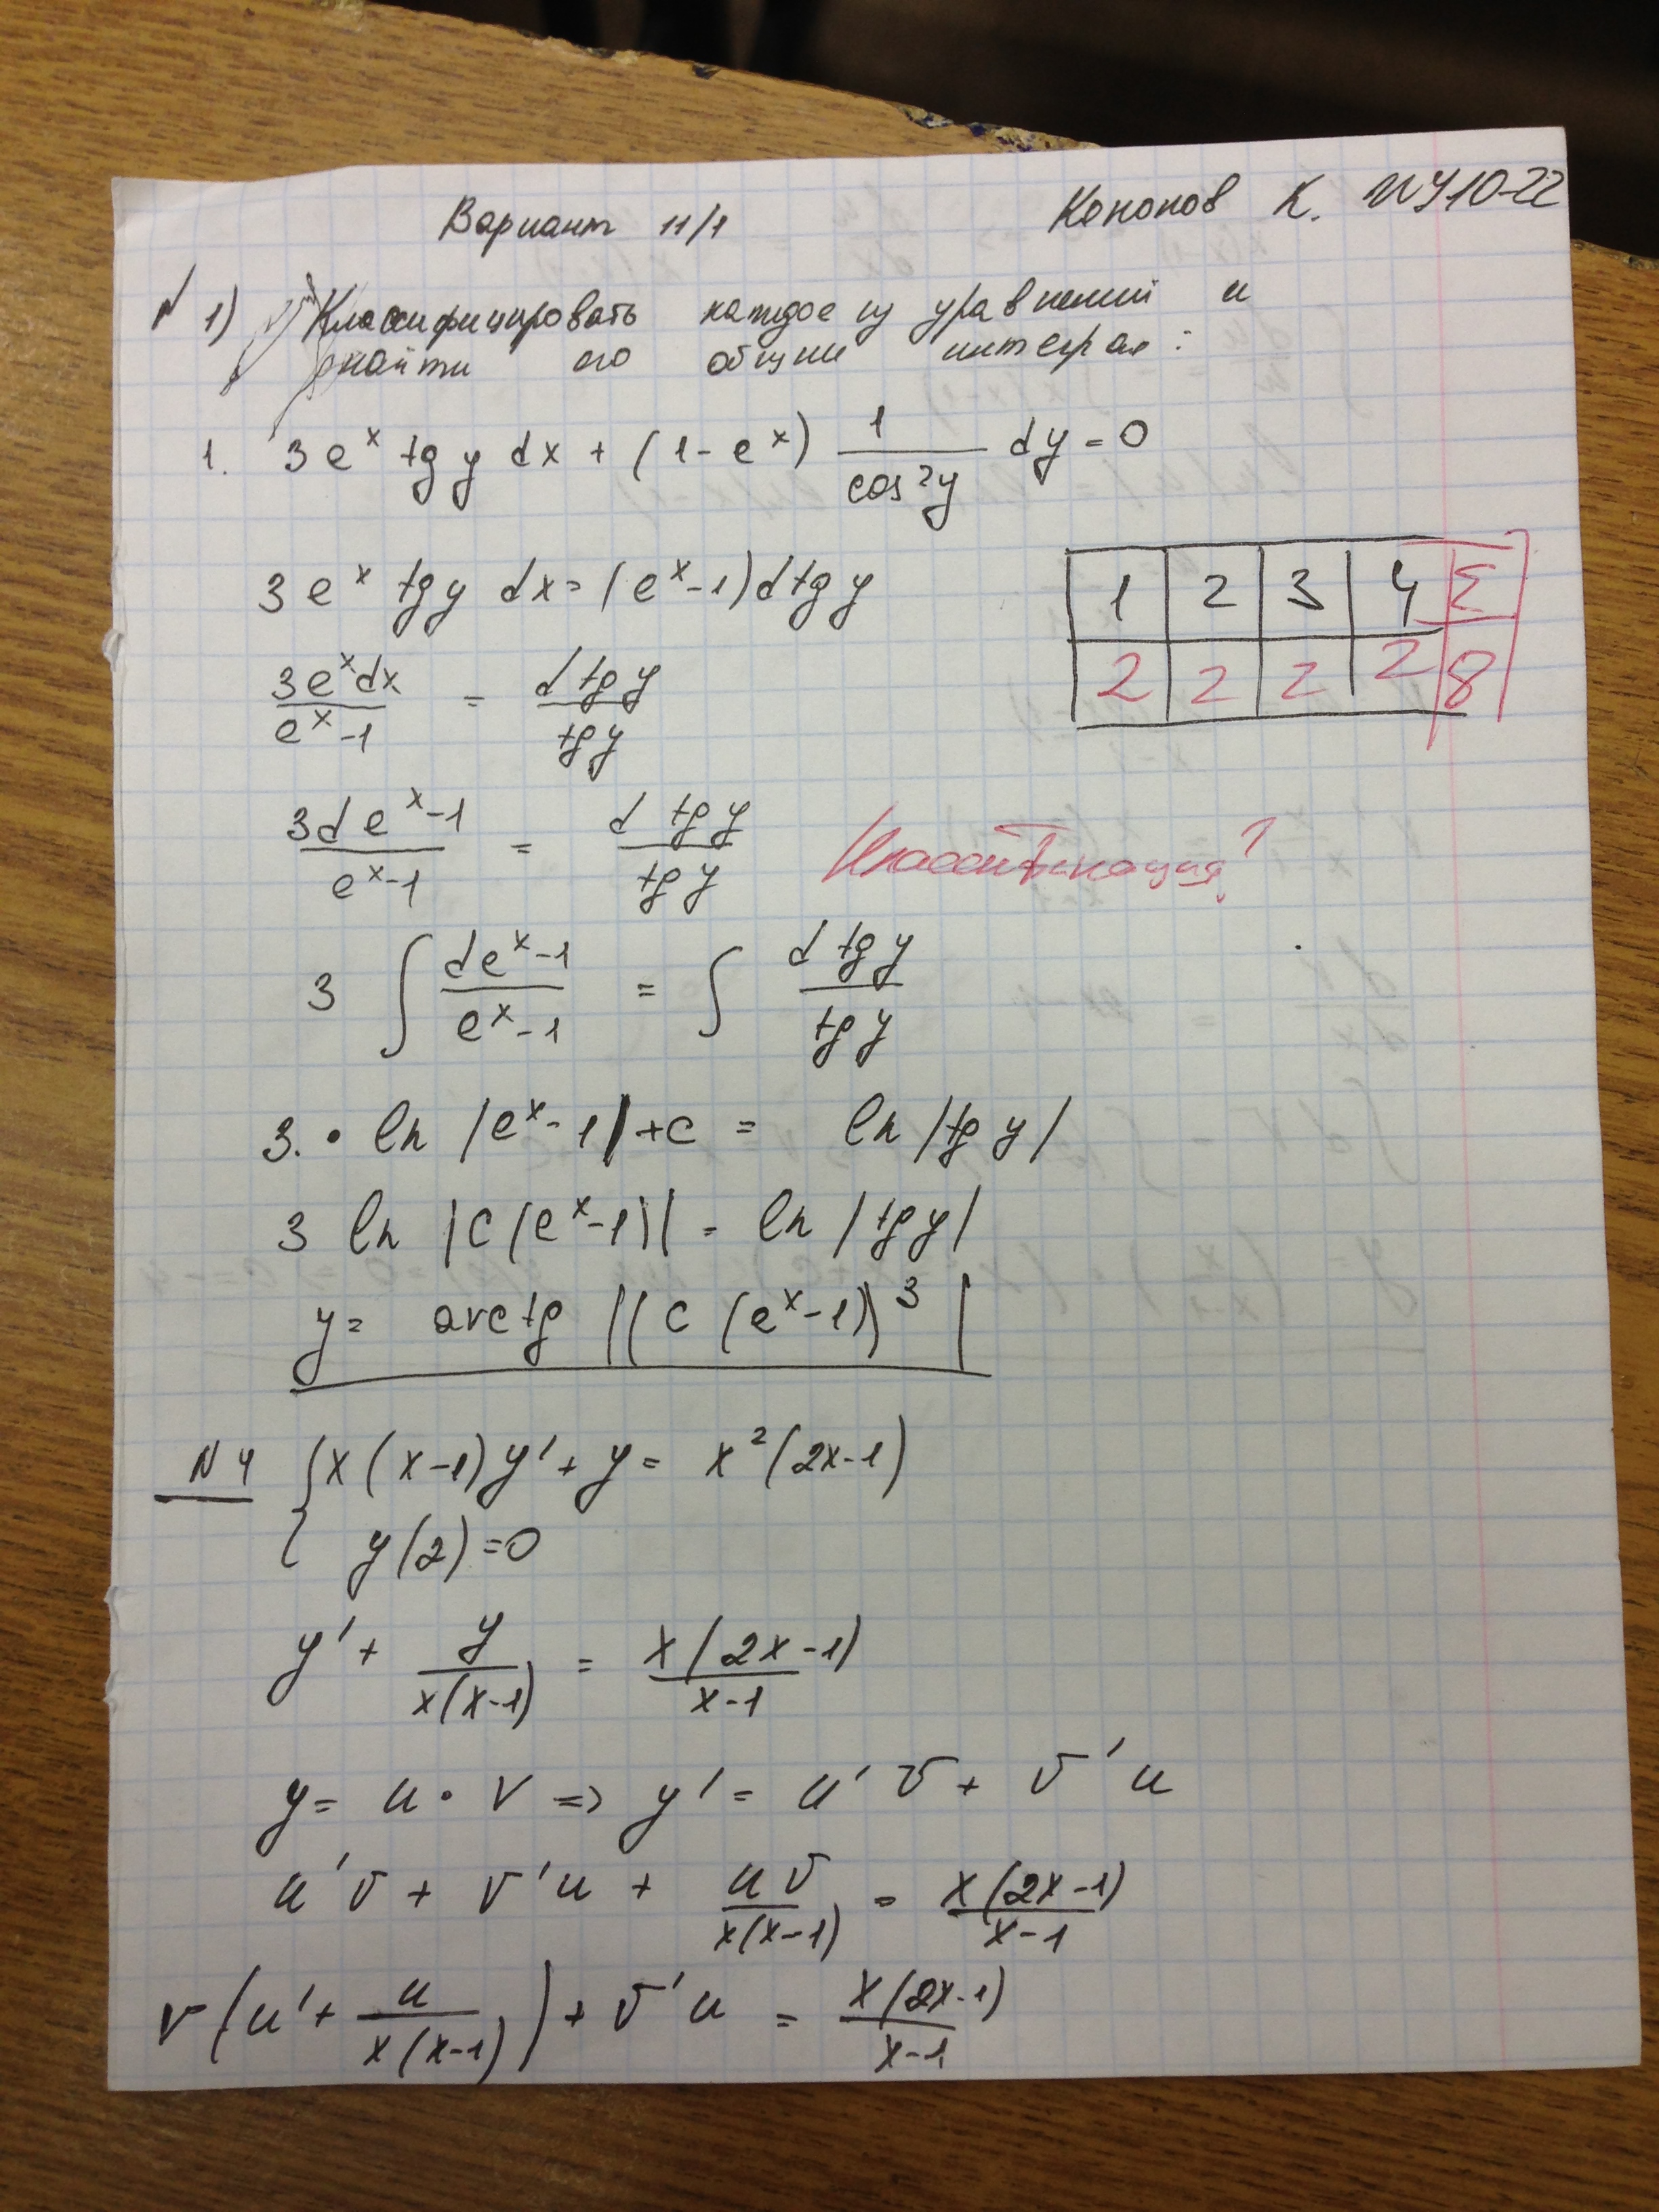 Вариант 11/1
Кононов К. ИУ10-22
N 1) Классифицировать каждое из уравнений и
найти его общий интеграл:
1. 3e^x tg y dx + (1 - e^x) 1/cos²y dy = 0
3e^x tg y dx = (e^x - 1) d tg y
1 2 3 4 Σ
2 2 2 2 8
3e^x dx / e^x - 1 = d tg y / tg y
3 d e^x - 1 / e^x - 1 = d tg y / tg y
Классификация?
3 ∫ de^x - 1 / e^x - 1 = ∫ d tg y / tg y
3. • ln |e^x - 1| + c = ln |tg y|
3 ln |C (e^x - 1)| = ln |tg y|
y = arctg |(C (e^x - 1))³|
N 4 { x(x-1)y' + y = x²(2x-1)
y(2) = 0
y' + y / x(x-1) = x(2x-1) / x-1
y = u • v => y' = u'v + v'u
u'v + v'u + uv / x(x-1) = x(2x-1) / x-1
v (u' + u / x(x-1)) + v'u = x(2x-1) / x-1